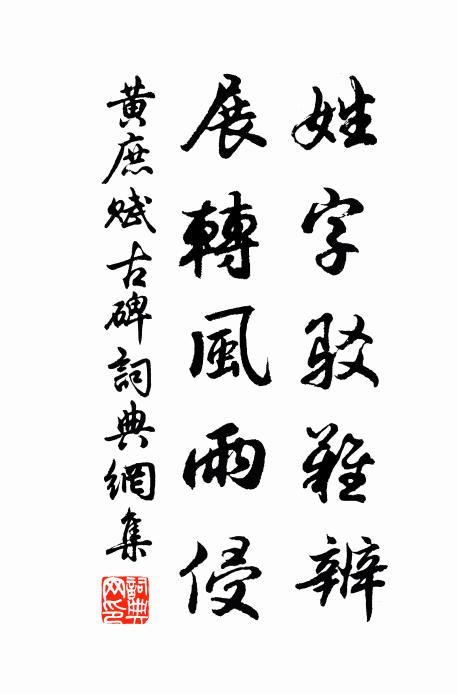 姓字駁難辨
展轉風雨侵
黃庶賦古碑詞典網集
詞典網印